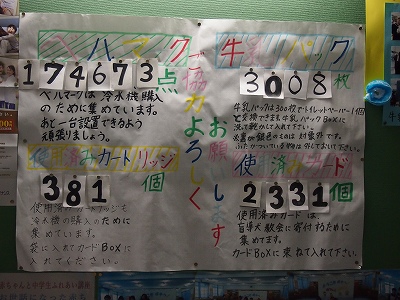 ベルマーク
174673点
ベルマークは冷水機購入
のために集めています。
あと一台設置できるよう
頑張りましょう。
使用済みカートリッジ
381個
冷水機の購入のために
集めています。
袋に入れてカードBOXに
入れてください。
ご協力よろしく
お願いします
牛乳パック
3008枚
牛乳パックは300枚でトイレットペーパー1個
と交換できます。牛乳パックBOXに
洗って乾かして入れて下さい。
使用済みカード
2331個
使用済みカードは、
盲導犬教会に寄付するために
集めてます。
カードBOXに束ねて入れて下さい。